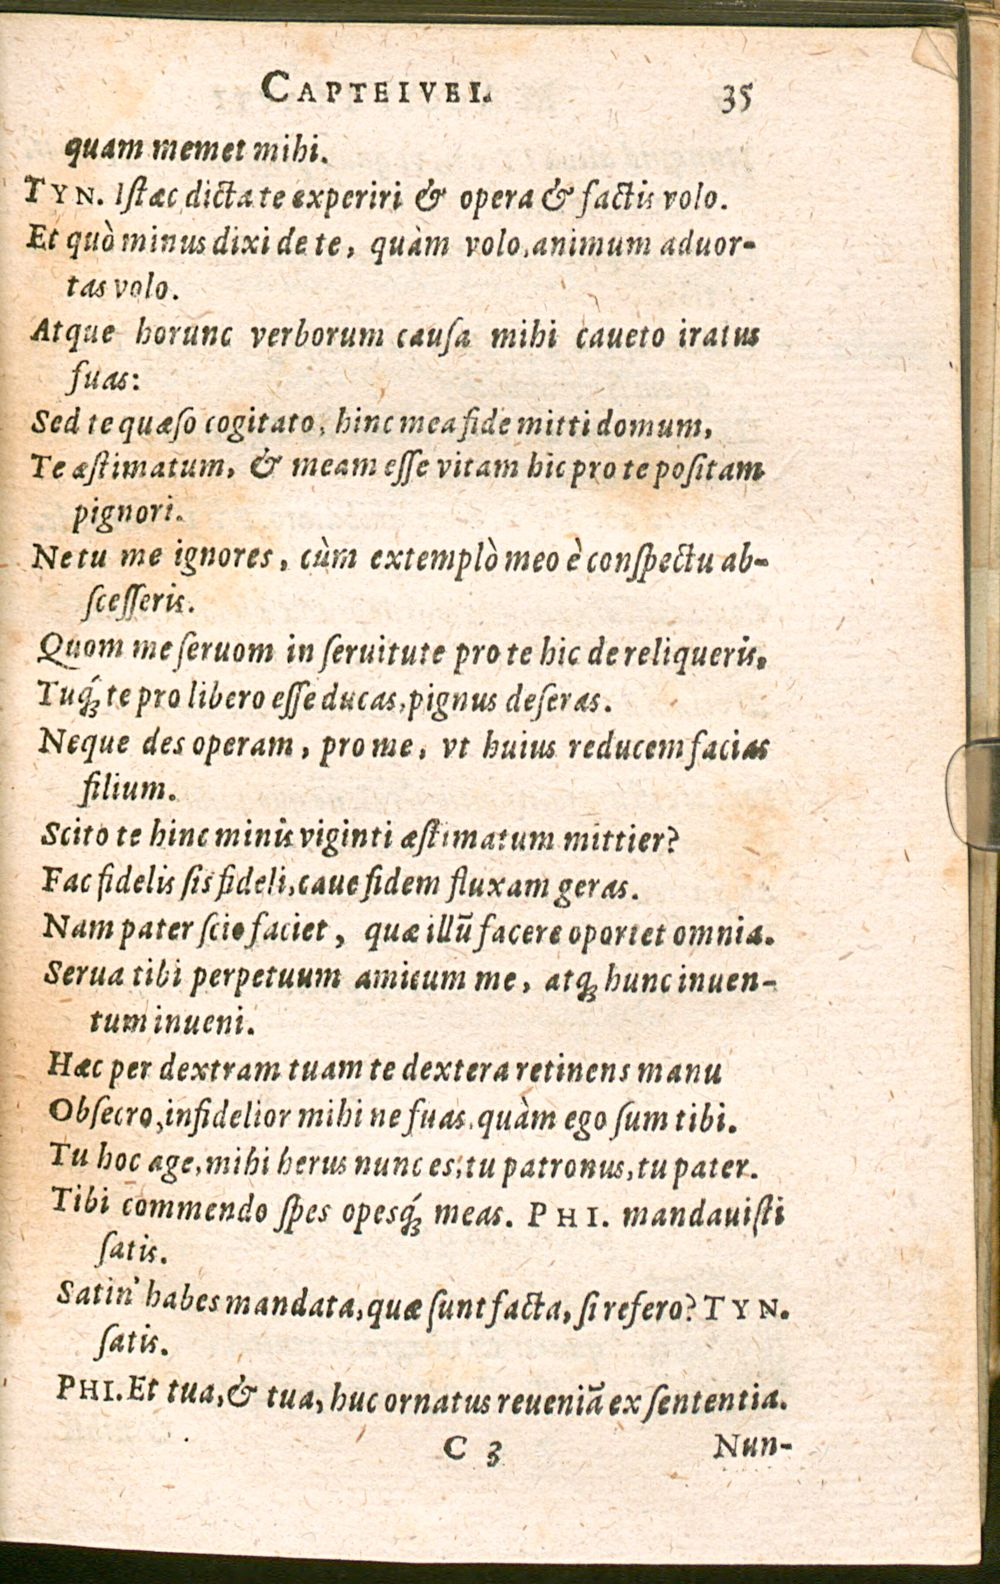 CAPTEIVEI. 35
quam memet mihi.
TYN. Iſtæc dicta te experiri & opera & factis volo.
Et quò minus dixi de te, quàm volo, animum aduor-
tas volo.
Atque horunc verborum cauſa mihi caueto iratus
fuas:
Sed te quæſo cogitato, hinc mea fide mitti domum,
Te æſtimatum, & meam eſſe vitam hic pro te poſitam
pignori.
Ne tu me ignores, cùm extemplò meo è conſpectu ab-
ſceſſeris.
Quom me ſeruom in ſeruitute pro te hic de reliqueris,
Tuq́ꝫ te pro libero eſſe ducas, pignus deſeras.
Neque des operam, pro me, vt huius reducem facias
filium.
Scito te hinc minis viginti æſtimatum mittier?
Fac fidelis ſis fideli, caue fidem fluxam geras.
Nam pater ſcio faciet, quæ illū facere oportet omnia.
Serua tibi perpetuum amicum me, atqꝫ hunc inuen-
tum inueni.
Hæc per dextram tuam te dextera retinens manu
Obſecro, infidelior mihi ne fuas, quàm ego ſum tibi.
Tu hoc age, mihi herus nunc es, tu patronus, tu pater.
Tibi commendo ſpes opesq́ꝫ meas. PHI. mandauiſti
ſatis.
Satin' habes mandata, quæ ſunt facta, ſi refero? TYN.
ſatis.
PHI. Et tua, & tua, huc ornatus reueniā ex ſententia.
C 3 Nun-